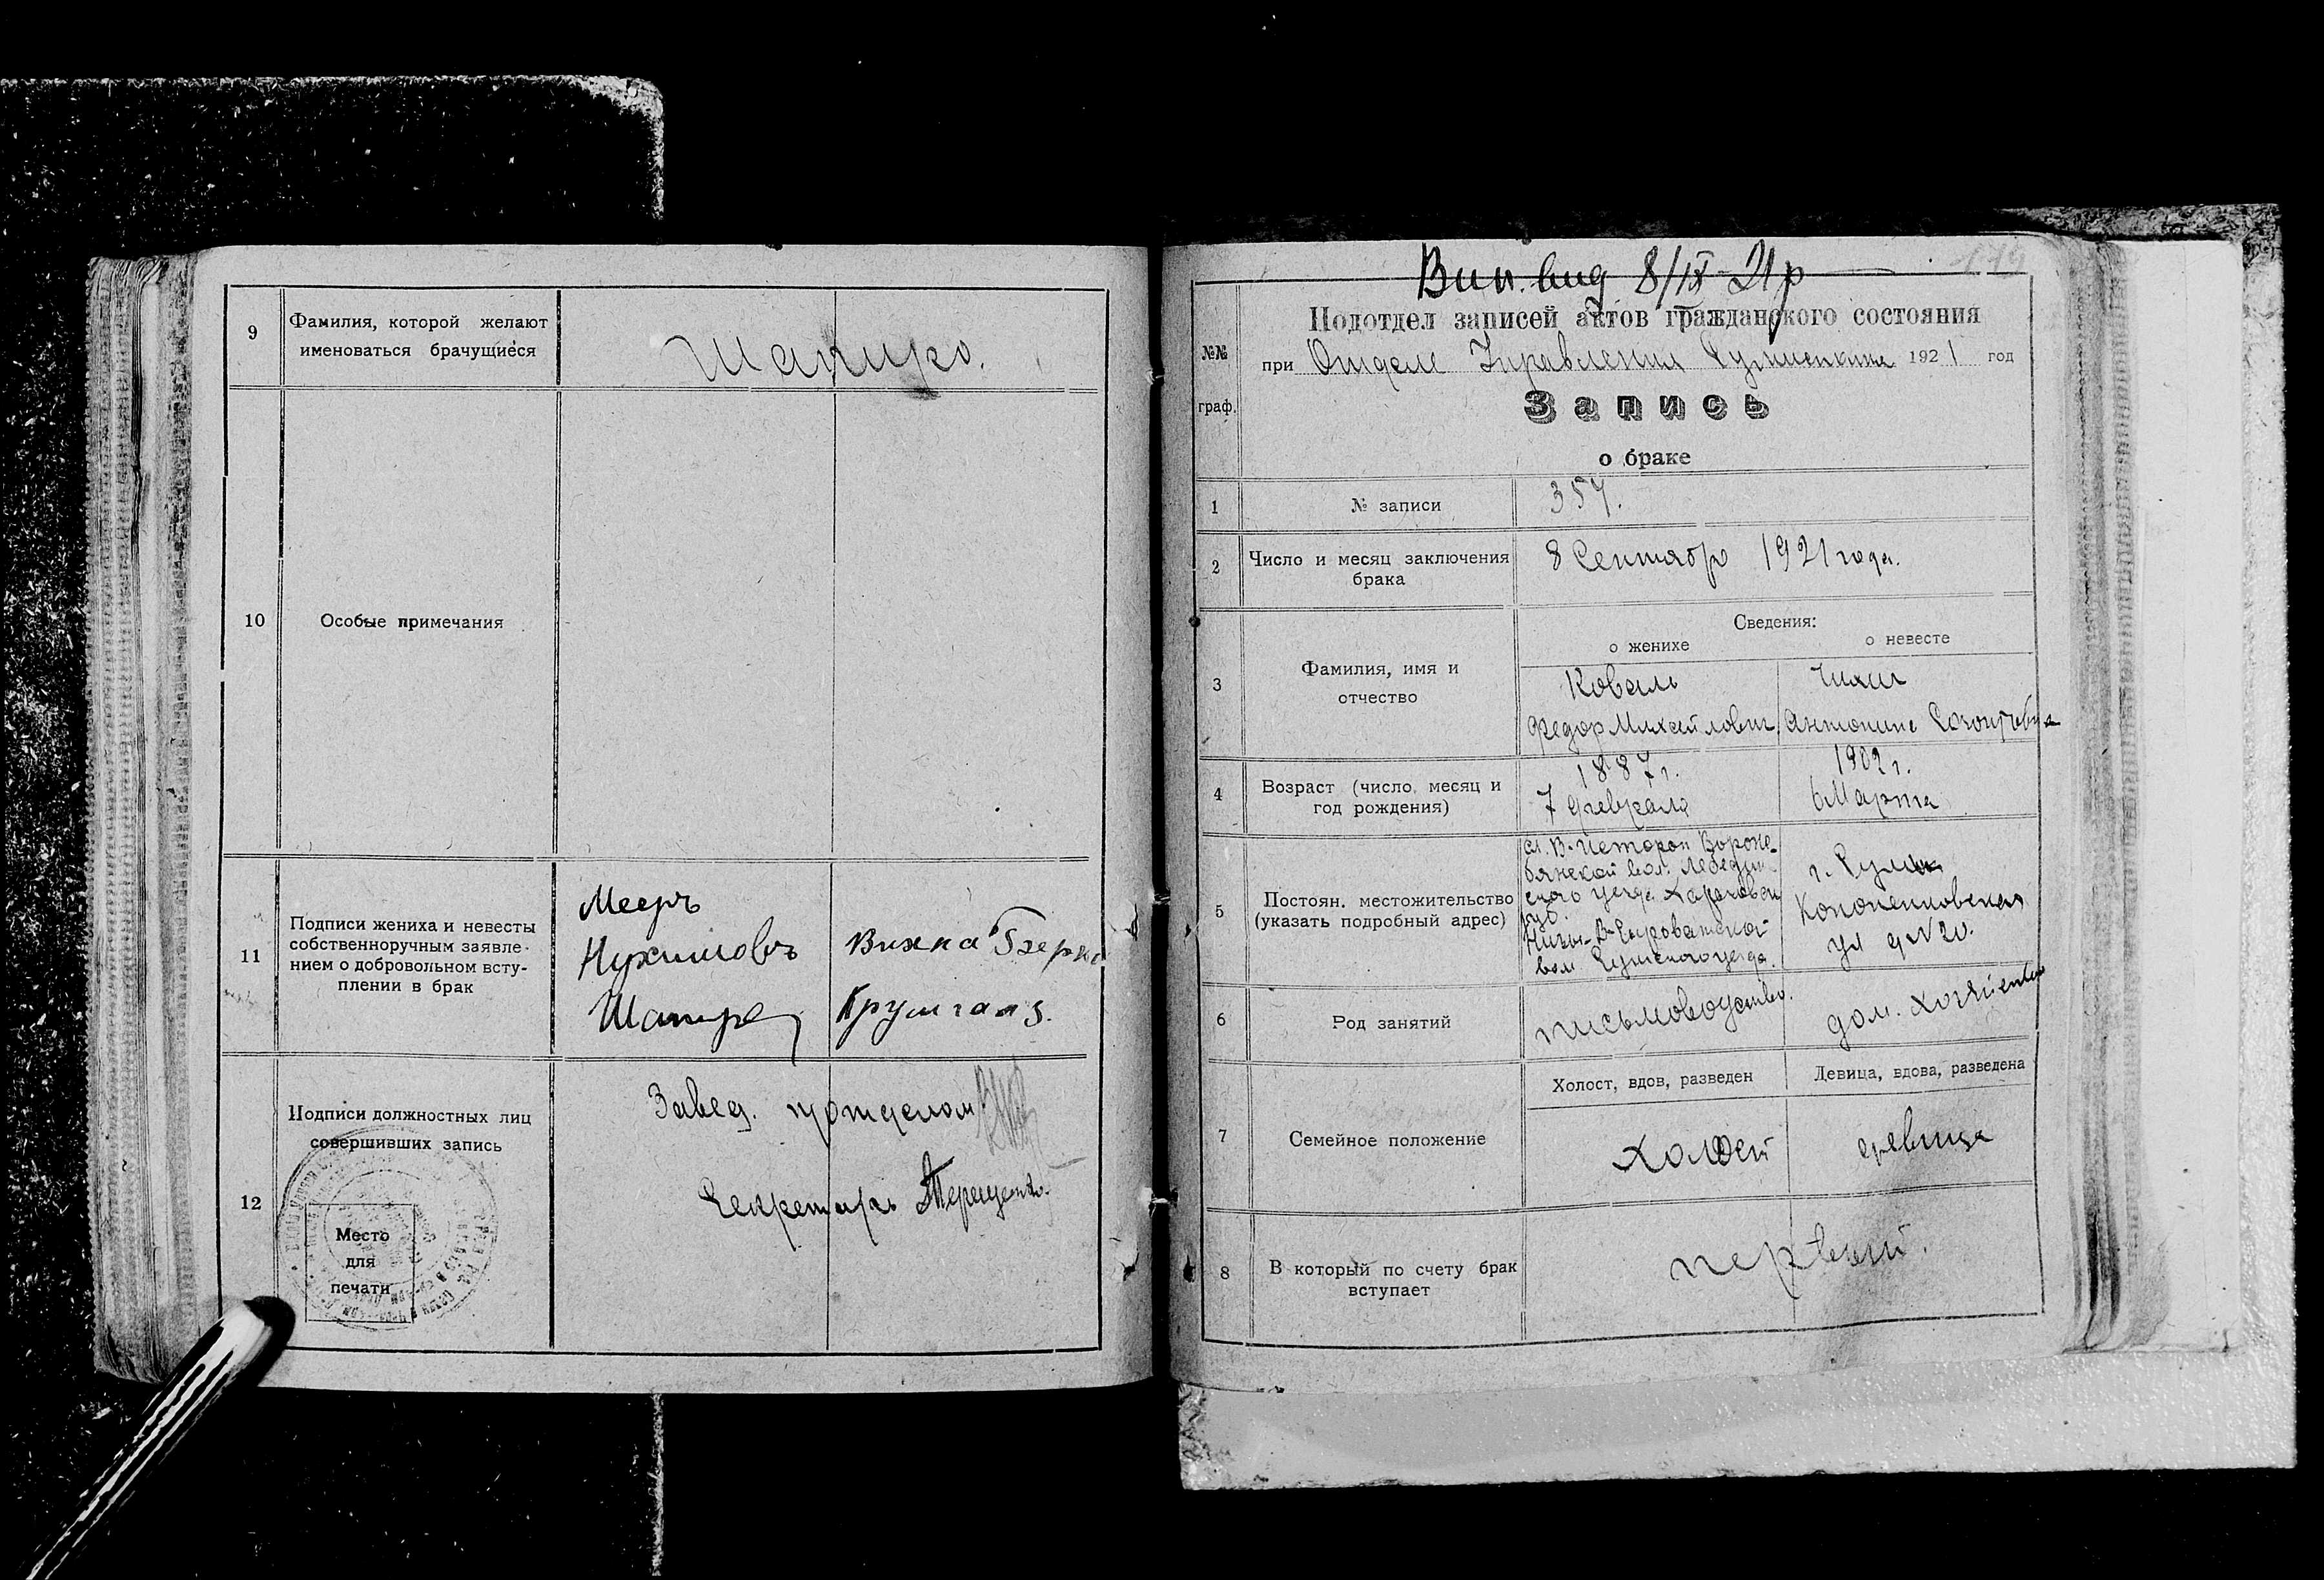 9
Фамилия, которой желают
именоваться брачущиеся
Шапиро.
10
Особые примечания
11
Подписи жениха и невесты
собственноручным заявле-
нием о добровольном всту-
плении в брак
Мееръ
Нухимовъ
Шапиро
Крумгалз.
12
Подписи должностных лиц
совершивших запись
Место
для
печати
Завед. п/отделом
Секретарь Терещенко
Вып. вид 8/IX 21 р
№№
граф.
Подотдел записей актов гражданского состояния
при Отделе Управления 1921 год
Запись
о браке
1
№ записи
357.
2
Число и месяц заключения
брака
8 Сентябр 1921 года.
3
Фамилия, имя и
отчество
Сведения:
о женихе
о невесте
Коваль
Федор Михайлович
Антонина
4
Возраст (число, месяц и
год рождения)
1887 г.
7 февраля
1902 г.
6 Марта
5
Постоян. местожительство
(указать подробный адрес)
сл. В-Истороп Вороже-
бянской вол. Лебедин-
ского уезда Харьковской
губ.
Сыроватской
вол Сумского уезда.
г. Сумы
Кононенковская
ул д №20.
6
Род занятий
письмоводство.
дом. хозяйство
7
Семейное положение
Холост, вдов, разведен
Девица, вдова, разведена
холостой
девица
8
В который по счету брак
вступает
первый.